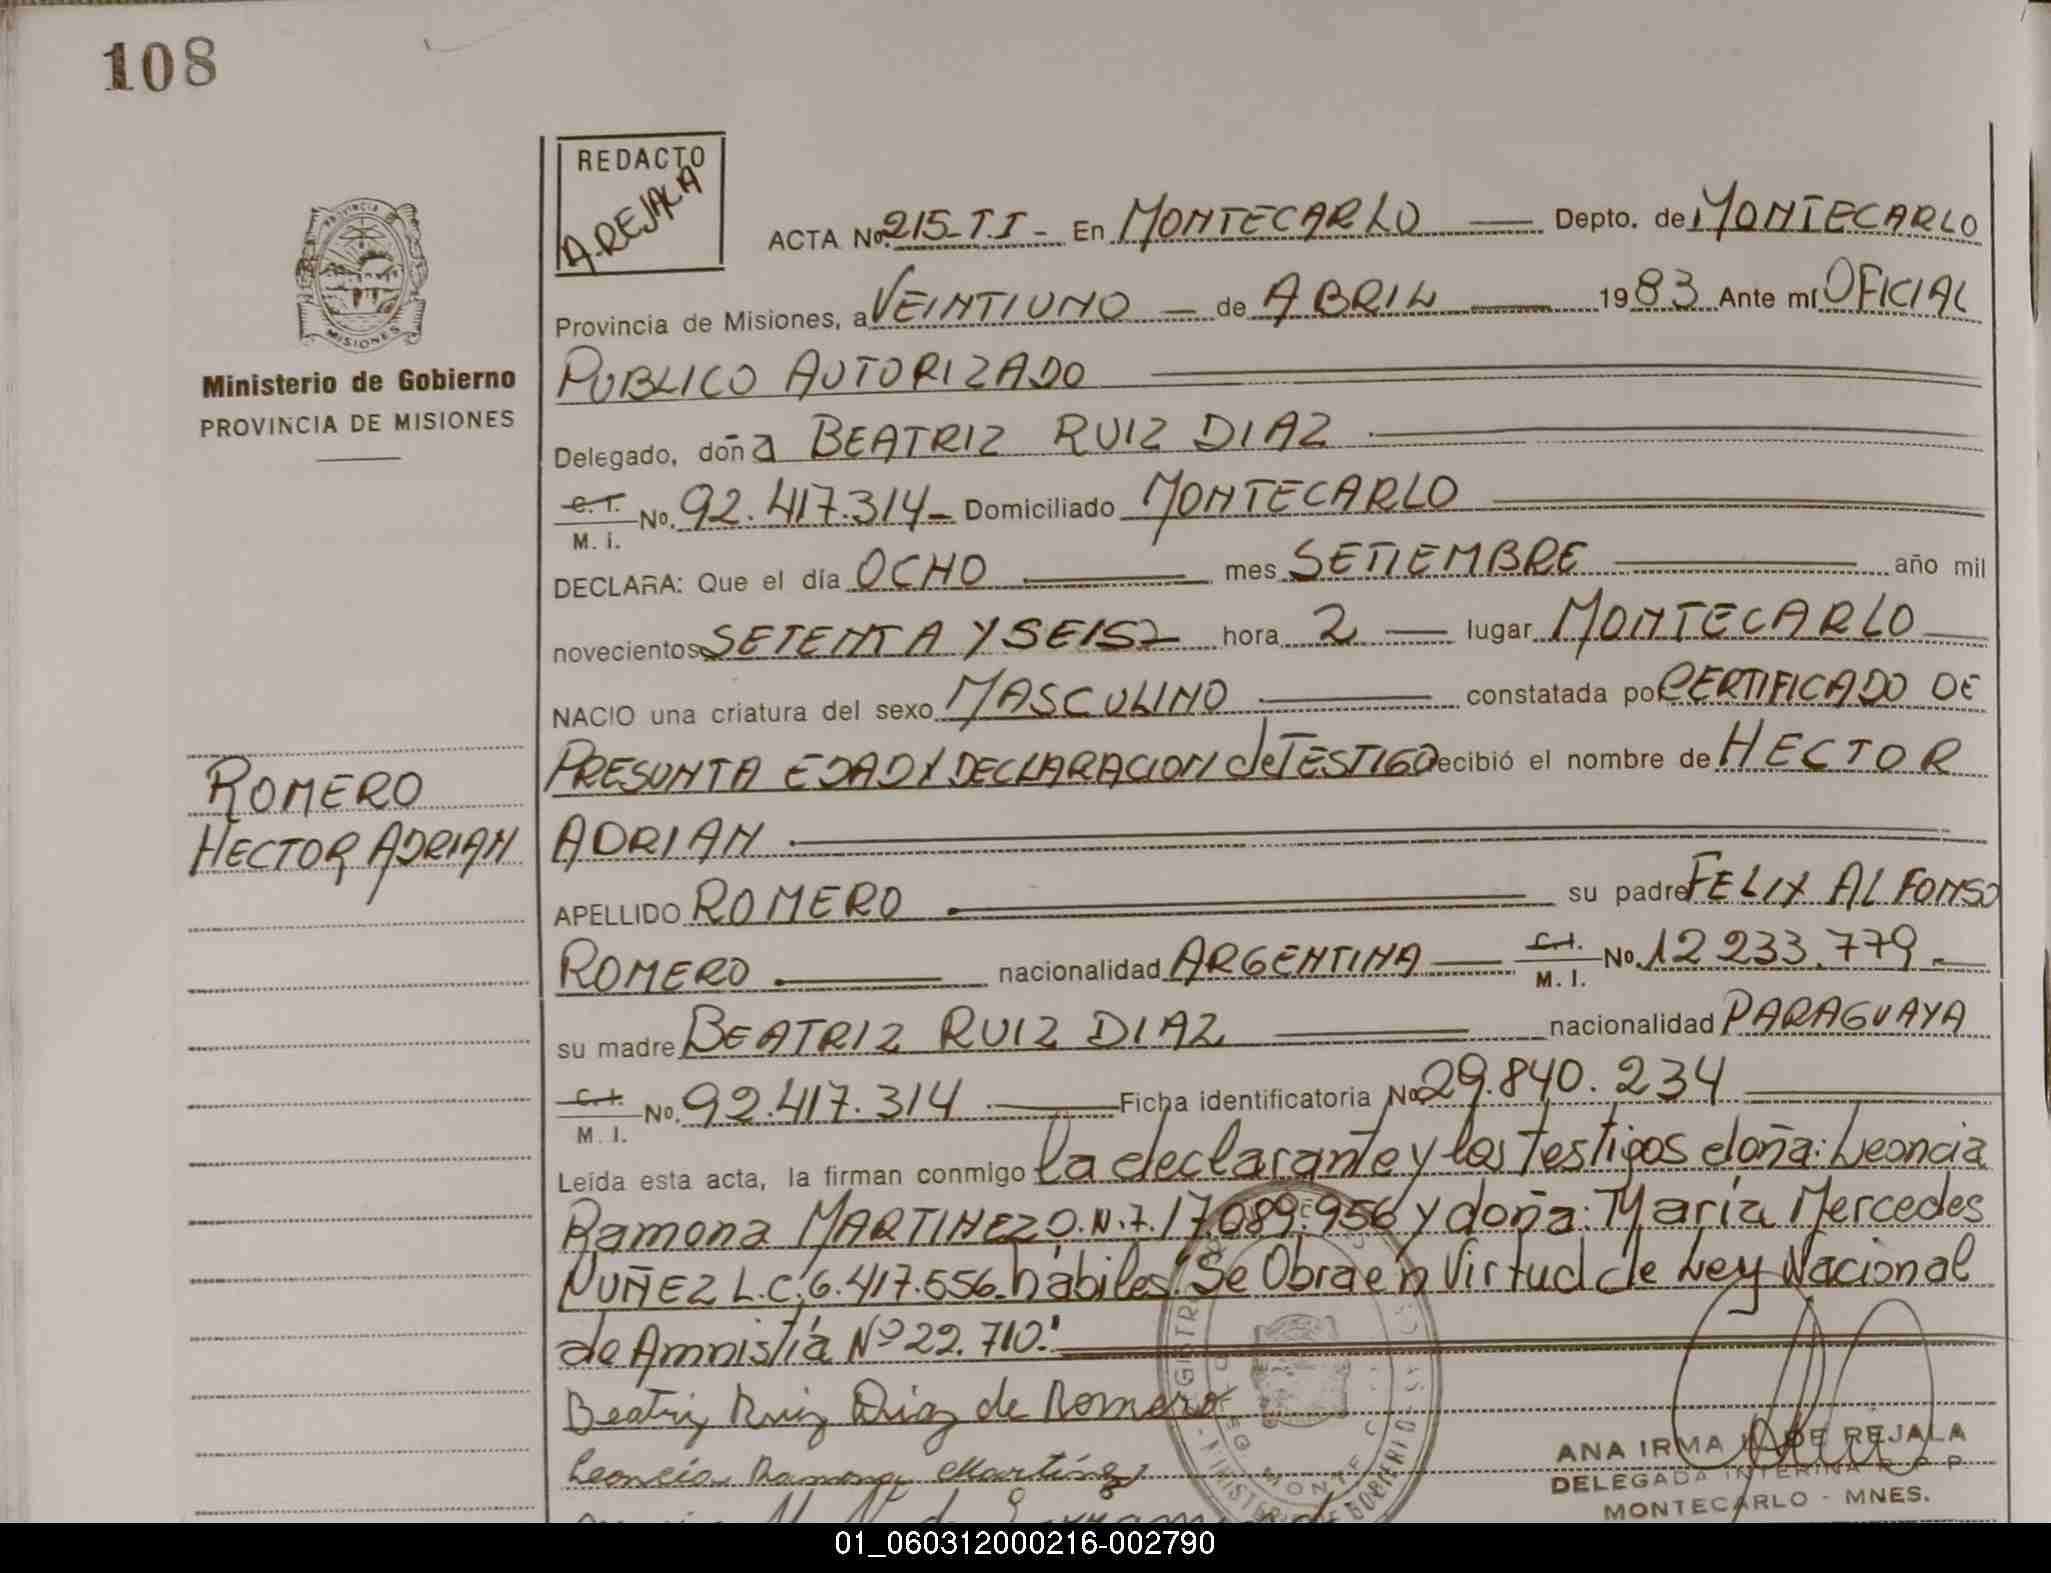 108
REDACTO
A. REJALA
PROVINCIA
MISIONES
Ministerio de Gobierno
PROVINCIA DE MISIONES
ACTA No. 215-T.I- En MONTECARLO Depto. de MONTECARLO
Provincia de Misiones, a VEINTIUNO de ABRIL 1983 Ante mí OFICIAL
PUBLICO AUTORIZADO
Delegado, doña BEATRIZ RUIZ DIAZ
C. I. M. i. No. 92.417.314- Domiciliado MONTECARLO
DECLARA: Que el día OCHO mes SETIEMBRE año mil
novecientos SETENTA Y SEIS hora 2 lugar MONTECARLO
NACIO una criatura del sexo MASCULINO constatada por CERTIFICADO DE
PRESUNTA EDAD Y DECLARACION de TESTIGO ecibió el nombre de HECTOR
ADRIAN
ROMERO
HECTOR ADRIAN
APELLIDO ROMERO su padre FELIX ALFONSO
ROMERO nacionalidad ARGENTINA C.I. M. I. No. 12 233.779.-
su madre BEATRIZ RUIZ DIAZ nacionalidad PARAGUAYA
C.I. M. I. No. 92.417.314 Ficha identificatoria No 29.840.234
Leída esta acta, la firman conmigo la declarante y los testigos doña: Leoncia
Ramona MARTINEZ D.N.I. 17.089.956 y doña: María Mercedes
NUÑEZ L.C. 6.417.556. hábiles. Se Obra en Virtud de Ley Nacional
de Amnistía Nº 22.710.
Beatriz Ruiz Diaz de Romero
Leoncia Ramona Martínez
ANA IRMA DE REJALA
DELEGADA INTERINA R. P. P.
MONTECARLO - MNES.
01_060312000216-002790